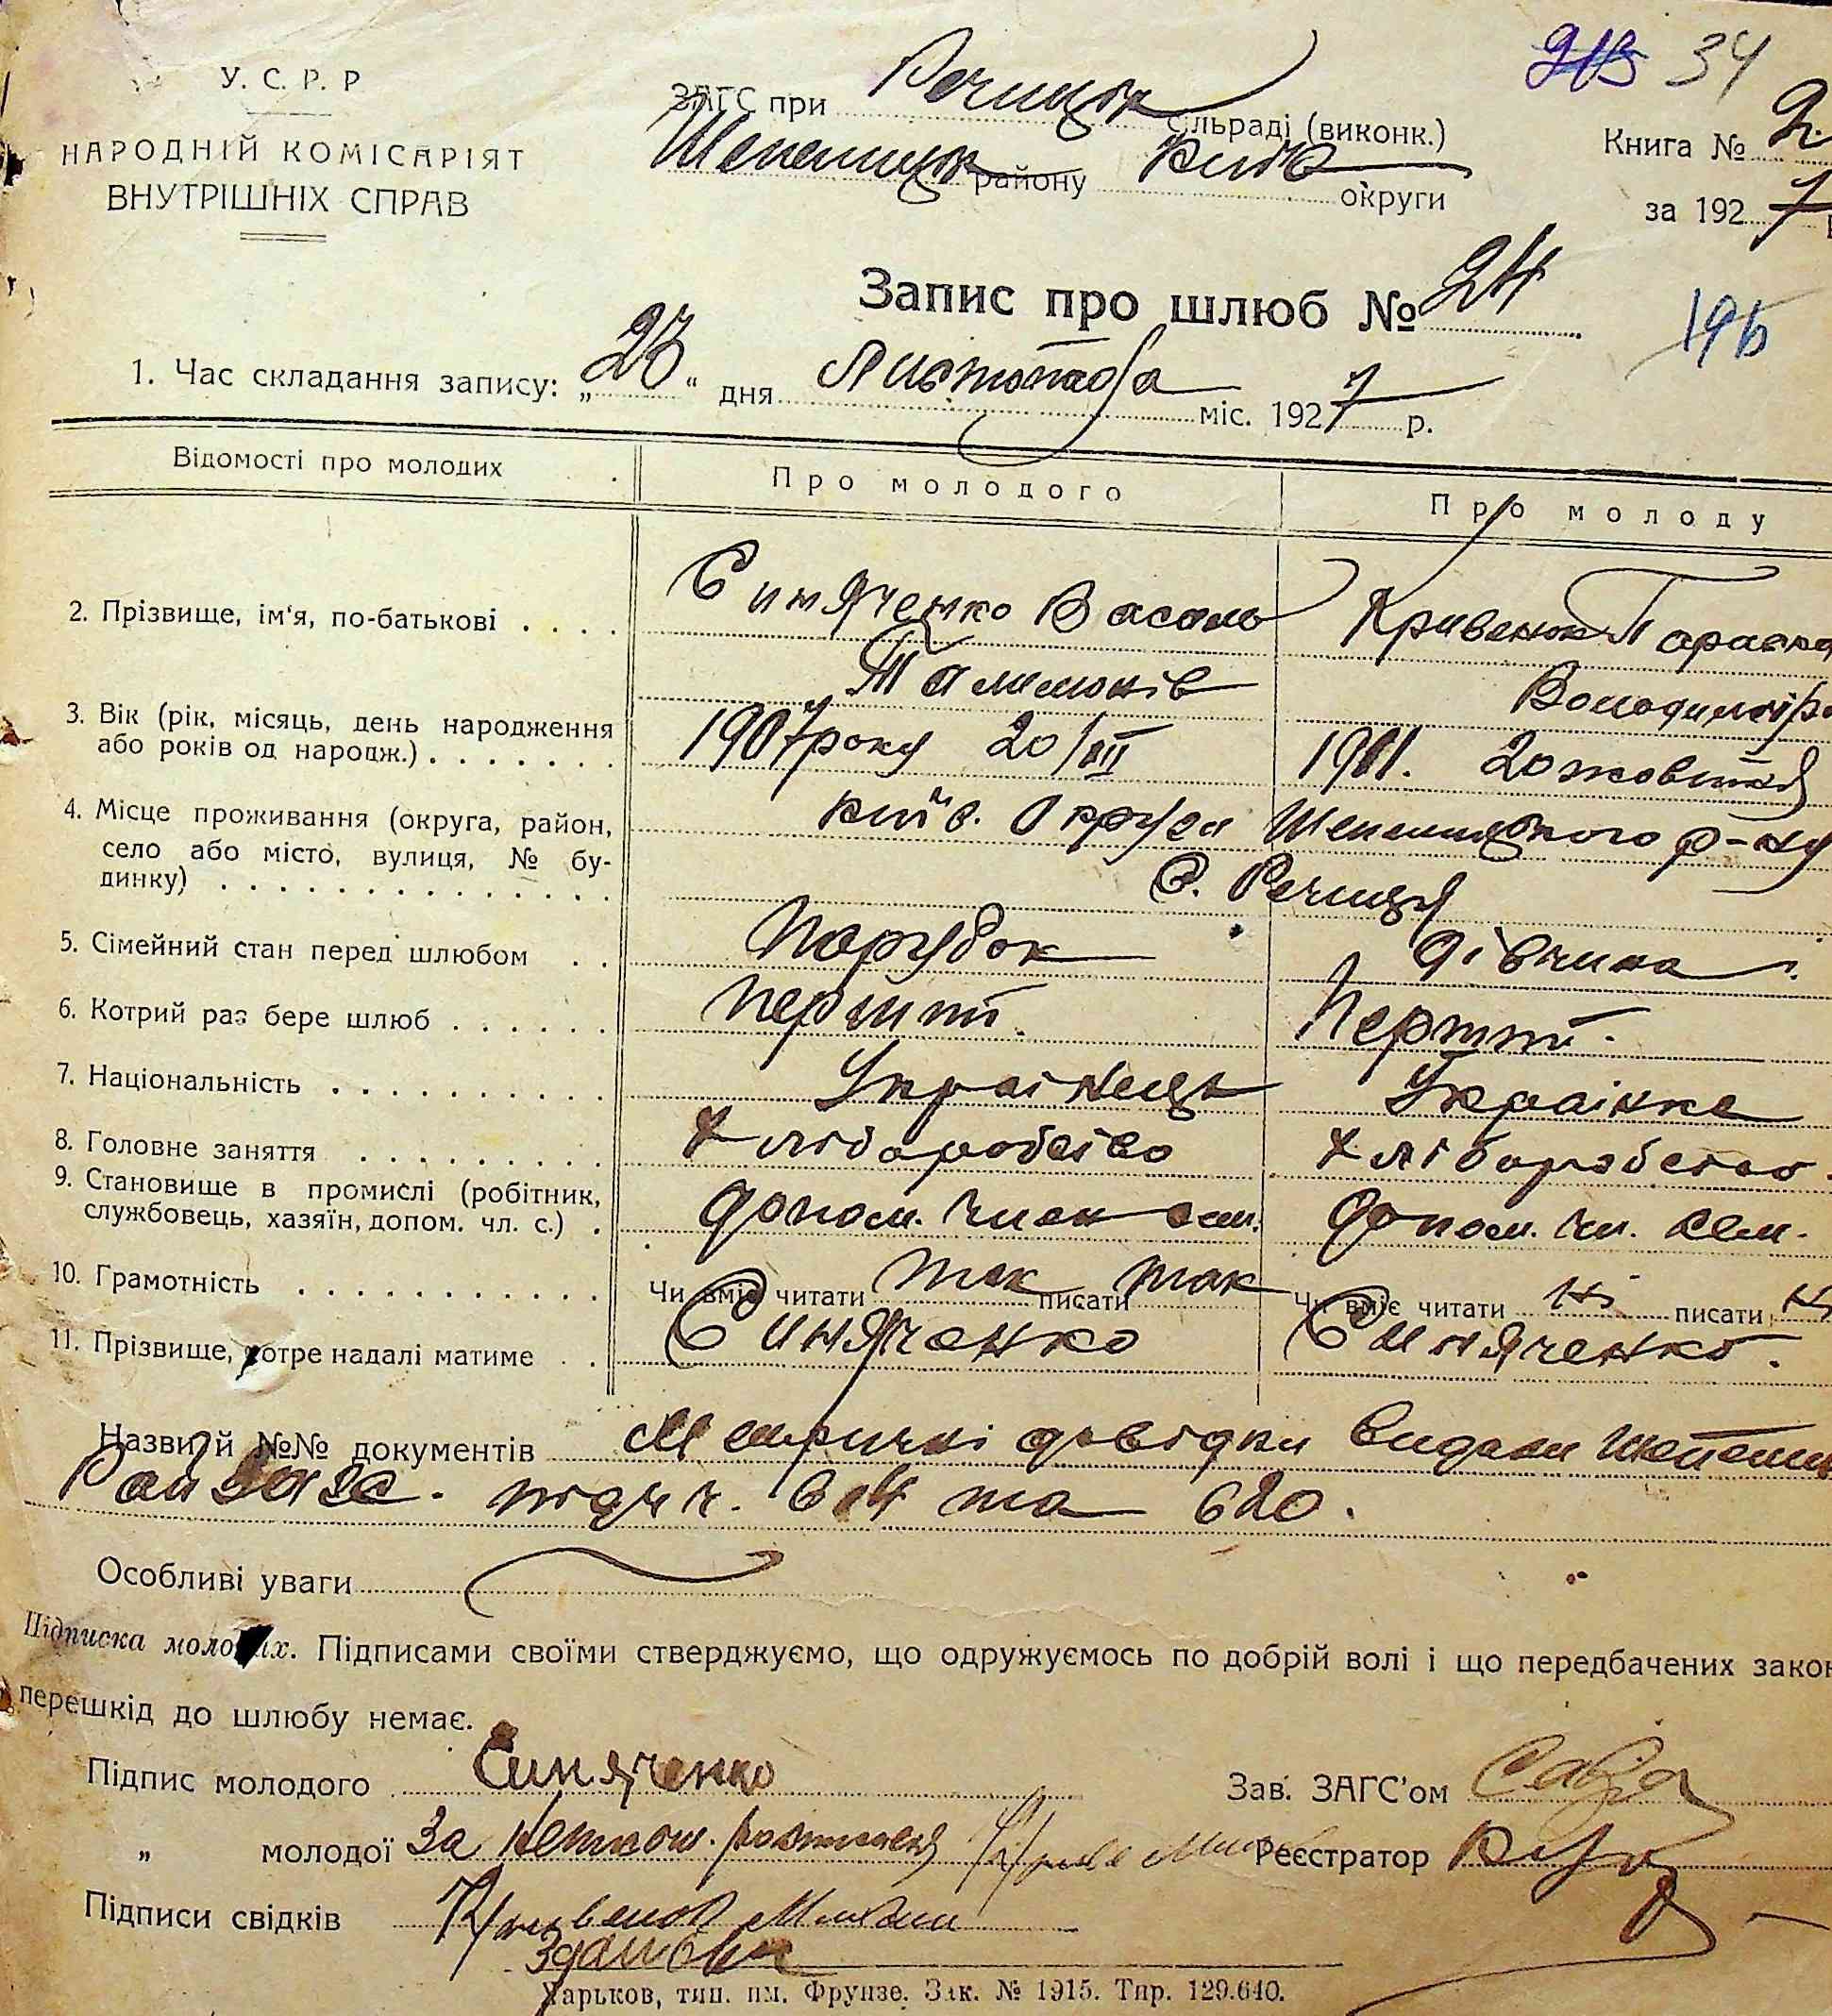 34
У. С. Р. Р
НАРОДНІЙ КОМІСАРІЯТ
ВНУТРІШНІХ СПРАВ
ЗАГС при Речицьк сільраді (виконк.)
Шепелицьк району Київ округи
Книга № 2
за 1927
Запис про шлюб № 24
195
1. Час складання запису: „23“ дня Листопада міс. 1927 р.
Відомості про молодих
Про молодого
Про молоду
2. Прізвище, ім'я, по-батькові
Синяченко Василь
Кривенок Параска
Володимір
3. Вік (рік, місяць, день народження
або років од народж.)
1907 року 20/III
1911. 20 жовтня
4. Місце проживання (округа, район,
село або місто, вулиця, № бу-
динку)
Київ. Округа Шепелицького р-ну
С. Речиця
5. Сімейний стан перед шлюбом
Парубок
Дівчина
6. Котрий раз бере шлюб
Перший.
Перший.
7. Національність
Українець
Українка
8. Головне заняття
Хліборобство
Хліборобство
9. Становище в промислі (робітник,
службовець, хазяїн, допом. чл. с.)
допом. член сем.
допом. чл. сем.
10. Грамотність
Чи вміє читати так писати так
Чи вміє читати ні писати ні
11. Прізвище, котре надалі матиме
Синяченко
Синяченко.
Назви й №№ документів Метричні довідки видани Шепелиц
Рай ЗАГС. під ч. ч. 614 та 620.
Особливі уваги
Підписка молодих. Підписами своїми стверджуємо, що одружуємось по добрій волі і що передбачених закон
перешкід до шлюбу немає.
Підпис молодого Синяченко
Зав. ЗАГС'ом
„ молодої За неграм. розписався
Реєстратор
Підписи свідків Кривенок
Харьков, тип. им. Фрунзе. Зак. № 1915. Тир. 129.640.